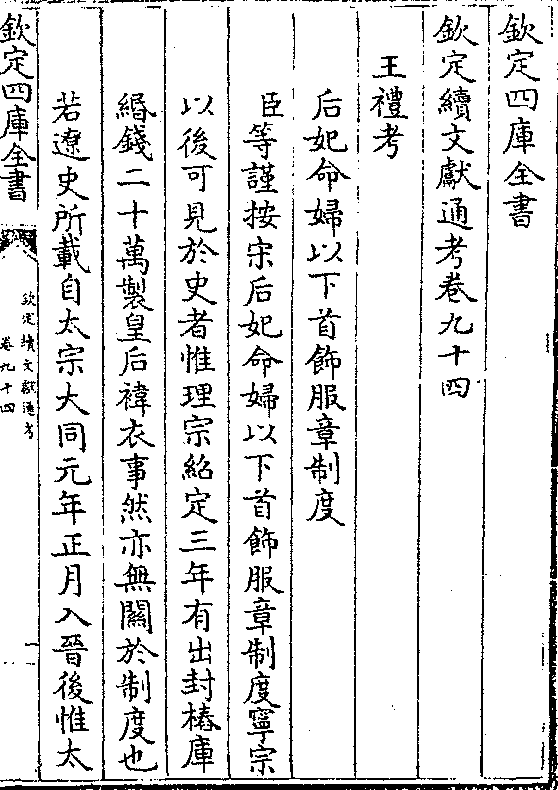 欽定四庫全書
欽定續文獻通考卷九十四
王禮考
后妃命婦以下首飾服章制度
臣等謹按宋后妃命婦以下首飾服章制度寧宗
以後可見於史者惟理宗紹定三年有出封樁庫
緡錢二十萬製皇后褘衣事然亦無關於制度也
若遼史所載自太宗大同元年正月入晉後惟太
欽定四庫全書
欽定續文獻通考
卷九十四
一